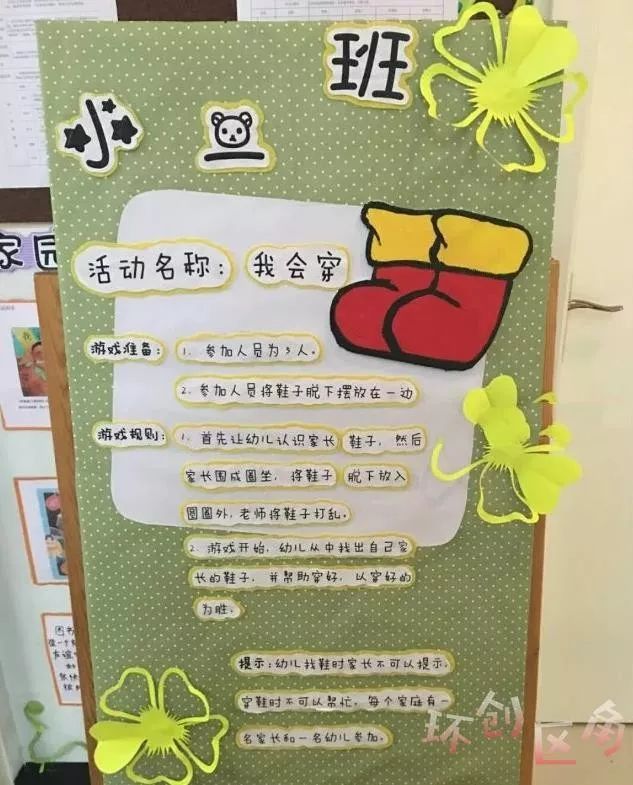 小 班
家园
活动名称：我会穿
游戏准备：1. 参加人员为5人。
2. 参加人员将鞋子脱下摆放在一边
游戏规则：1. 首先让幼儿认识家长鞋子，然后
家长围成圆坐，将鞋子脱下放入
圆圈外，老师将鞋子打乱。
2. 游戏开始，幼儿从中找出自己家
长的鞋子，并帮助穿好，以穿好的
为胜。
提示：幼儿找鞋时家长不可以提示，
穿鞋时不可以帮忙，每个家庭有一
名家长和一名幼儿参加。
环创区角